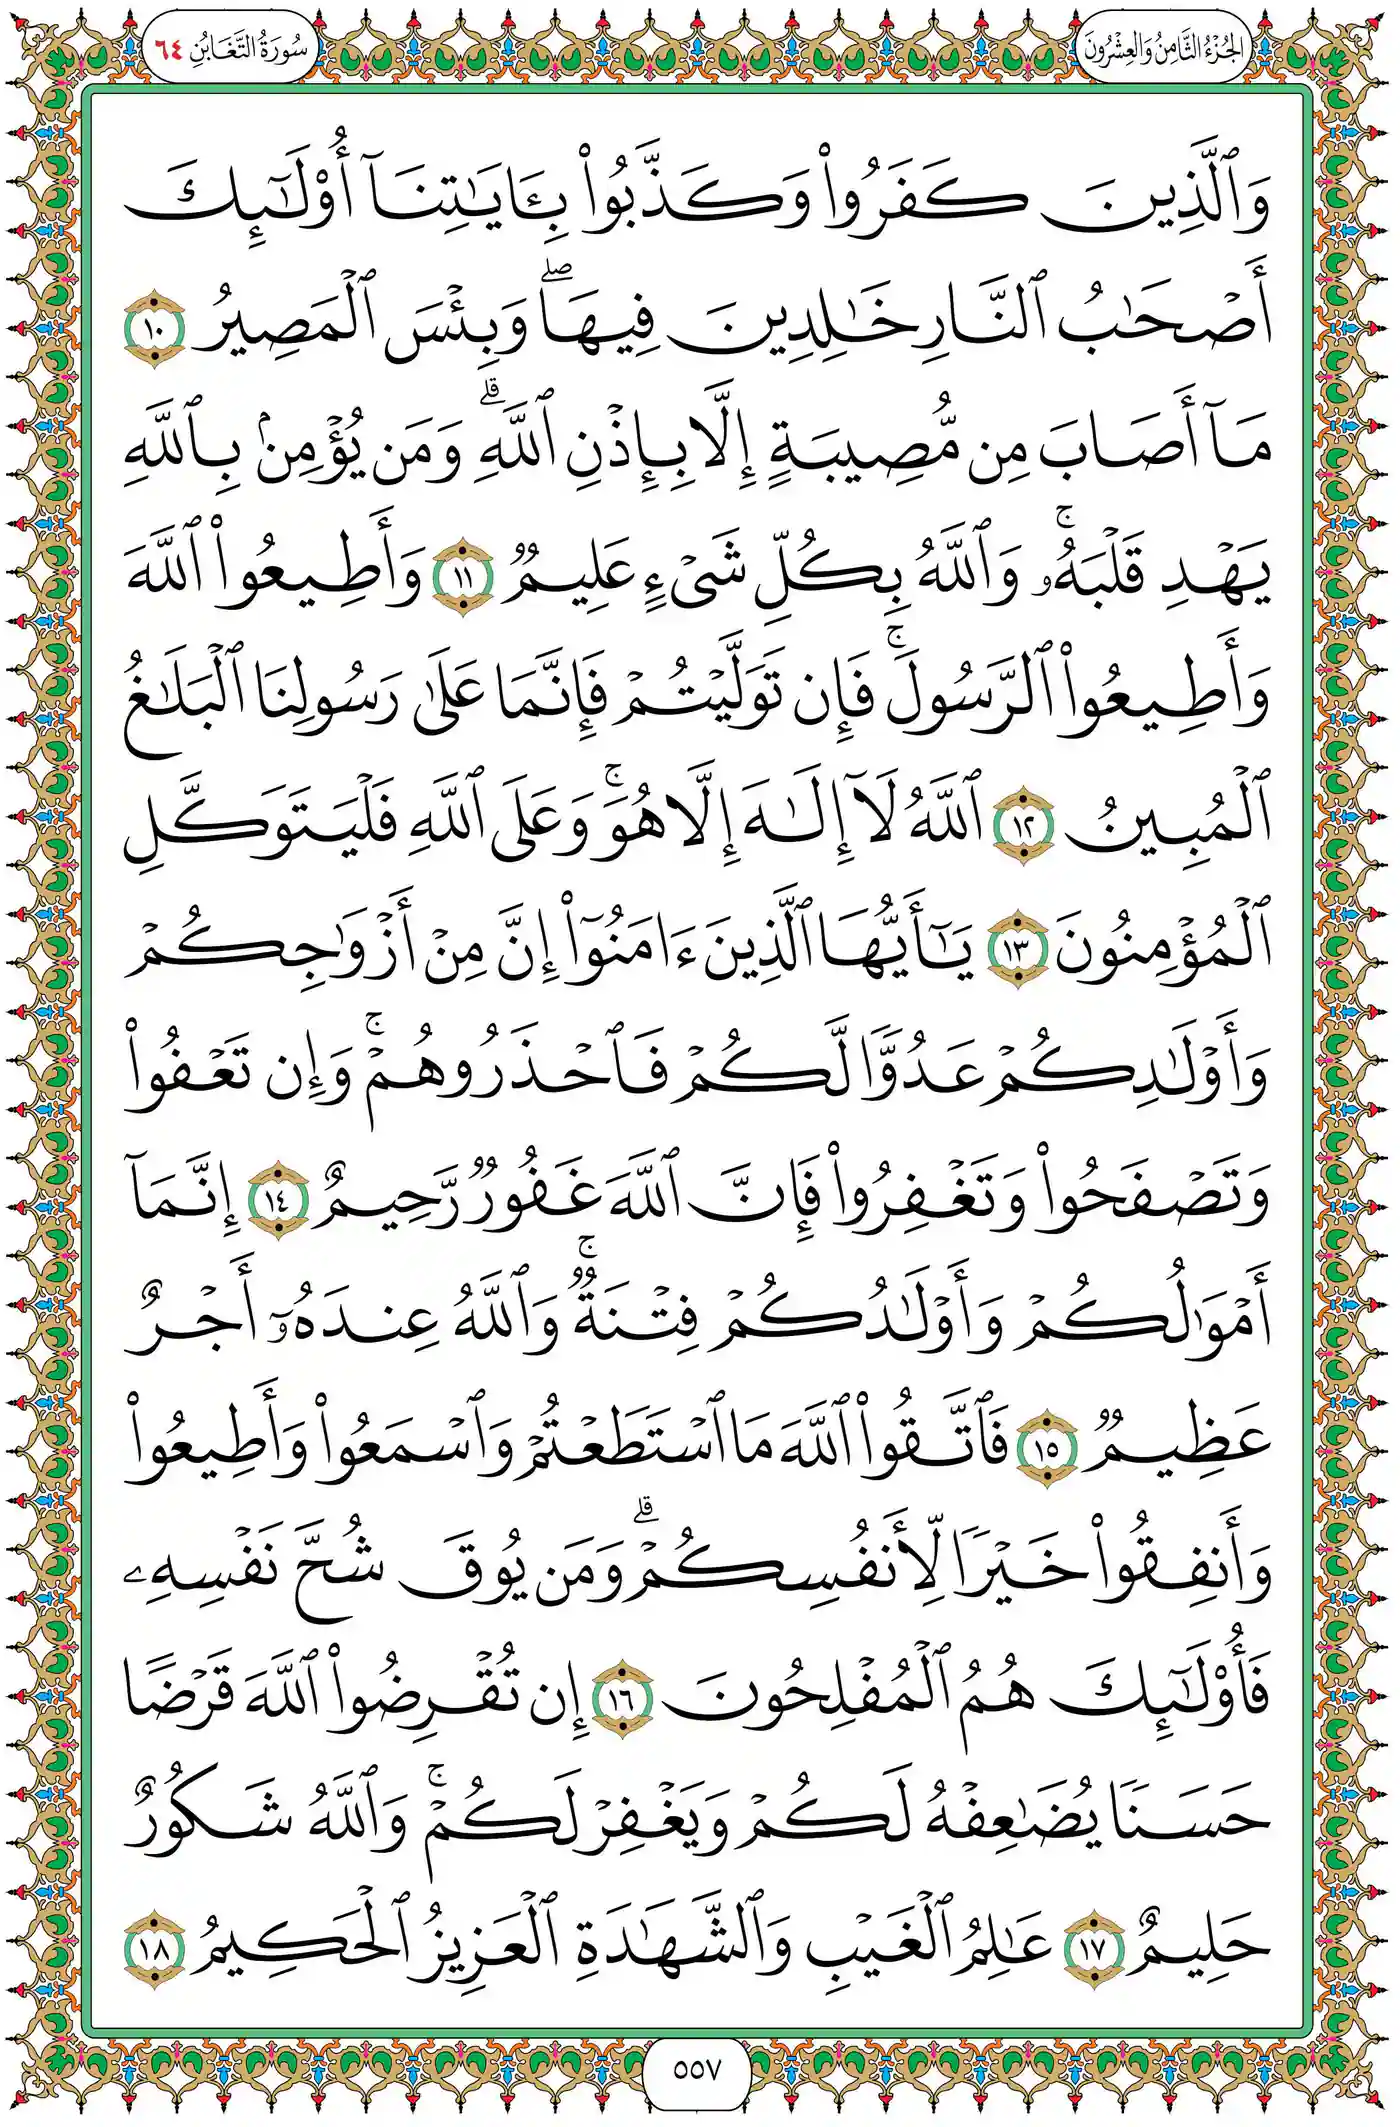 الجُزْءُ الثَّامِنُ وَالعِشْرُونَ
سُورَةُ التَّغَابُنِ ٦٤
وَٱلَّذِينَ كَفَرُوا۟ وَكَذَّبُوا۟ بِـَٔايَـٰتِنَآ أُو۟لَـٰٓئِكَ
أَصْحَـٰبُ ٱلنَّارِ خَـٰلِدِينَ فِيهَا ۖ وَبِئْسَ ٱلْمَصِيرُ ١٠
مَآ أَصَابَ مِن مُّصِيبَةٍ إِلَّا بِإِذْنِ ٱللَّهِ ۗ وَمَن يُؤْمِنۢ بِٱللَّهِ
يَهْدِ قَلْبَهُۥ ۚ وَٱللَّهُ بِكُلِّ شَىْءٍ عَلِيمٌ ١١ وَأَطِيعُوا۟ ٱللَّهَ
وَأَطِيعُوا۟ ٱلرَّسُولَ ۚ فَإِن تَوَلَّيْتُمْ فَإِنَّمَا عَلَىٰ رَسُولِنَا ٱلْبَلَـٰغُ
ٱلْمُبِينُ ١٢ ٱللَّهُ لَآ إِلَـٰهَ إِلَّا هُوَ ۚ وَعَلَى ٱللَّهِ فَلْيَتَوَكَّلِ
ٱلْمُؤْمِنُونَ ١٣ يَـٰٓأَيُّهَا ٱلَّذِينَ ءَامَنُوٓا۟ إِنَّ مِنْ أَزْوَٰجِكُمْ
وَأَوْلَـٰدِكُمْ عَدُوًّا لَّكُمْ فَٱحْذَرُوهُمْ ۚ وَإِن تَعْفُوا۟
وَتَصْفَحُوا۟ وَتَغْفِرُوا۟ فَإِنَّ ٱللَّهَ غَفُورٌ رَّحِيمٌ ١٤ إِنَّمَآ
أَمْوَٰلُكُمْ وَأَوْلَـٰدُكُمْ فِتْنَةٌ ۚ وَٱللَّهُ عِندَهُۥٓ أَجْرٌ
عَظِيمٌ ١٥ فَٱتَّقُوا۟ ٱللَّهَ مَا ٱسْتَطَعْتُمْ وَٱسْمَعُوا۟ وَأَطِيعُوا۟
وَأَنفِقُوا۟ خَيْرًا لِّأَنفُسِكُمْ ۗ وَمَن يُوقَ شُحَّ نَفْسِهِۦ
فَأُو۟لَـٰٓئِكَ هُمُ ٱلْمُفْلِحُونَ ١٦ إِن تُقْرِضُوا۟ ٱللَّهَ قَرْضًا
حَسَنًا يُضَـٰعِفْهُ لَكُمْ وَيَغْفِرْ لَكُمْ ۚ وَٱللَّهُ شَكُورٌ
حَلِيمٌ ١٧ عَـٰلِمُ ٱلْغَيْبِ وَٱلشَّهَـٰدَةِ ٱلْعَزِيزُ ٱلْحَكِيمُ ١٨
٥٥٧